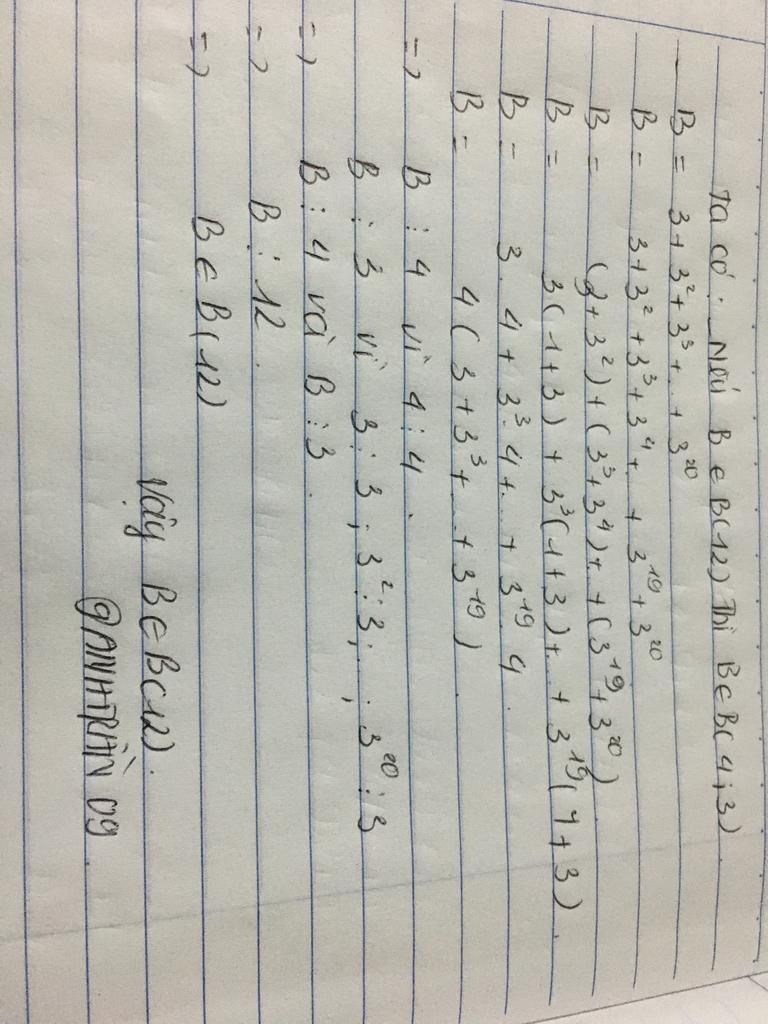 Ta có: Nếu B ∈ B(12) Thì B ∈ B(4;3)
B = 3 + 3² + 3³ + .. + 3²⁰
B = 3 + 3² + 3³ + 3⁴ + .. + 3¹⁹ + 3²⁰
B = (3 + 3²) + (3³ + 3⁴) + .. + (3¹⁹ + 3²⁰)
B = 3(1+3) + 3³(1+3) + .. + 3¹⁹(1+3).
B = 3.4 + 3³.4 + .. + 3¹⁹.4.
B = 4(3 + 3³ + .. + 3¹⁹).
=> B ⋮ 4 vì 4 ⋮ 4.
B ⋮ 3 vì 3 ⋮ 3; 3² ⋮ 3; ...; 3²⁰ ⋮ 3
=> B ⋮ 4 và B ⋮ 3.
=> B ⋮ 12.
=> B ∈ B(12)
Vậy B ∈ B(12).
@ANHTRẦN 09